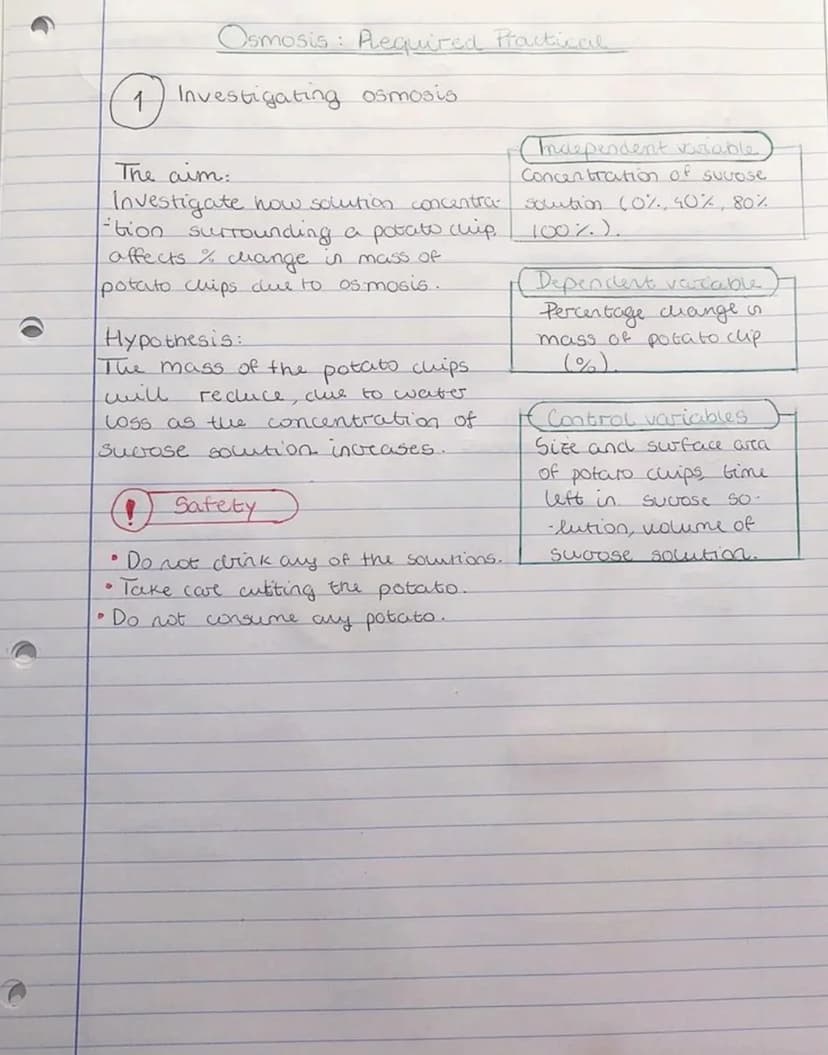 Osmosis: Required Practical
1 Investigating osmosis
The aim:
Investigate how solution concentra-
-tion surrounding a potato chip
affects % change in mass of
potato chips due to osmosis.
Hypothesis:
The mass of the potato chips
will reduce, due to water
loss as the concentration of
sucrose solution increases.
! Safety
• Do not drink any of the solutions.
• Take care cutting the potato.
• Do not consume any potato.
Independent variable
Concentration of sucrose
solution (0%, 40%, 80%
100%).
Dependent variable
Percentage change in
mass of potato chip
(%).
Control variables
Size and surface area
of potato chips, time
left in sucrose so-
-lution, volume of
sucrose solution.